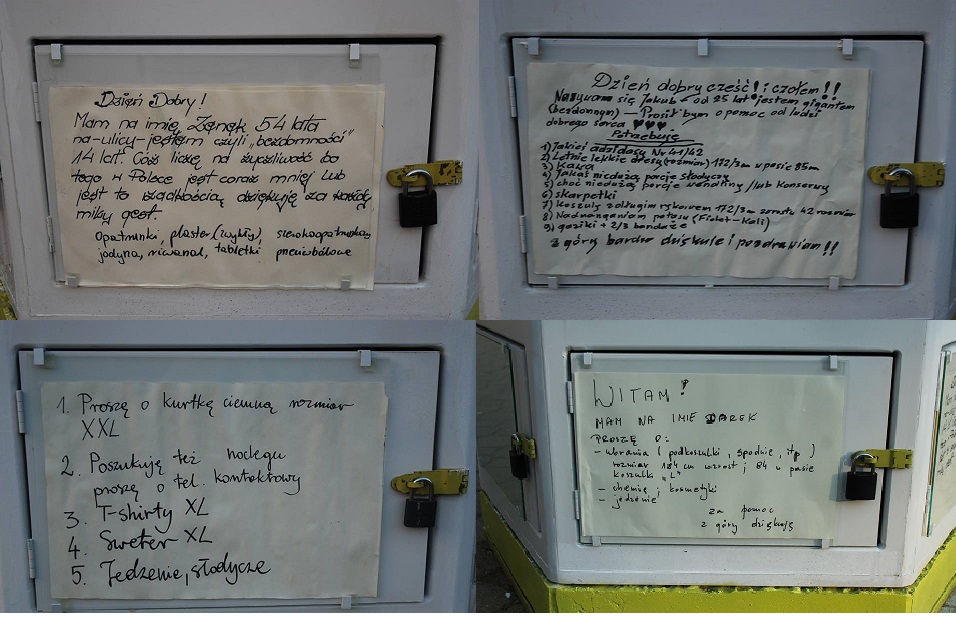 Dzień Dobry!
Mam na imię Zenek 54 lata
na-ulicy-jestem czyli „bezdomności"
14 lat. Cóż liczę na życzliwość bo
tego w Polsce jest coraz mniej lub
jest to rzadkością dziękuję za każdy
miły gest.
Opatrunki, plaster (zwykły),
jodyna, riwanol, tabletki przeciwbólowe
Dzień dobry cześć! i czołem!!
Nazywam się Jakub od 25 lat jestem gigantem
(bezdomnym) — Prosił bym o pomoc od ludzi
dobrego serca ♥♥♥.
Potrzebuję
1) Jakieś adidasy Nr 41/42
2) Letnie lekkie dresy (rozmiar) 172/3m w pasie 85m
3) Kawa
4) Jakąś niedużą porcję słodyczy
5) choć niedużą porcję wendliny /lub Konserwy
6) skarpetki
7) Koszulę z długim rękawem 172/3m wzrostu 42 rozmiar
8) Nadmanganiam potasu (Fiolet-Kali)
9) gaziki + 2/3 bandaże
z góry bardzo dziękuję i pozdrawiam!!
1. Proszę o kurtkę ciemną rozmiar
XXL
2. Poszukuję też noclegu
proszę o tel. kontaktowy
3. T-shirty XL
4. Sweter XL
5. Jedzenie, słodycze
WITAM!
MAM NA IMIE DAREK
PROSZĘ O:
- ubrania (podkoszulki, spodnie, itp)
rozmiar 184 cm wzrost i 84 w pasie
koszulka „L"
- chemię i kosmetyki
- jedzenie
za pomoc
z góry dziękuję